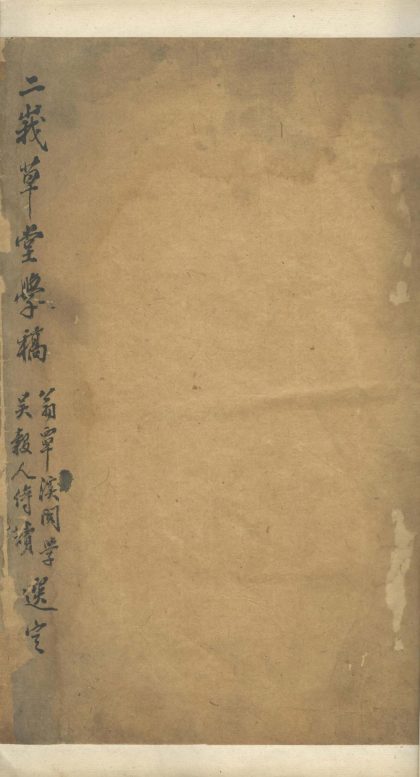 二峩草堂學稿
翁覃溪閣學
吴穀人侍讀
選定